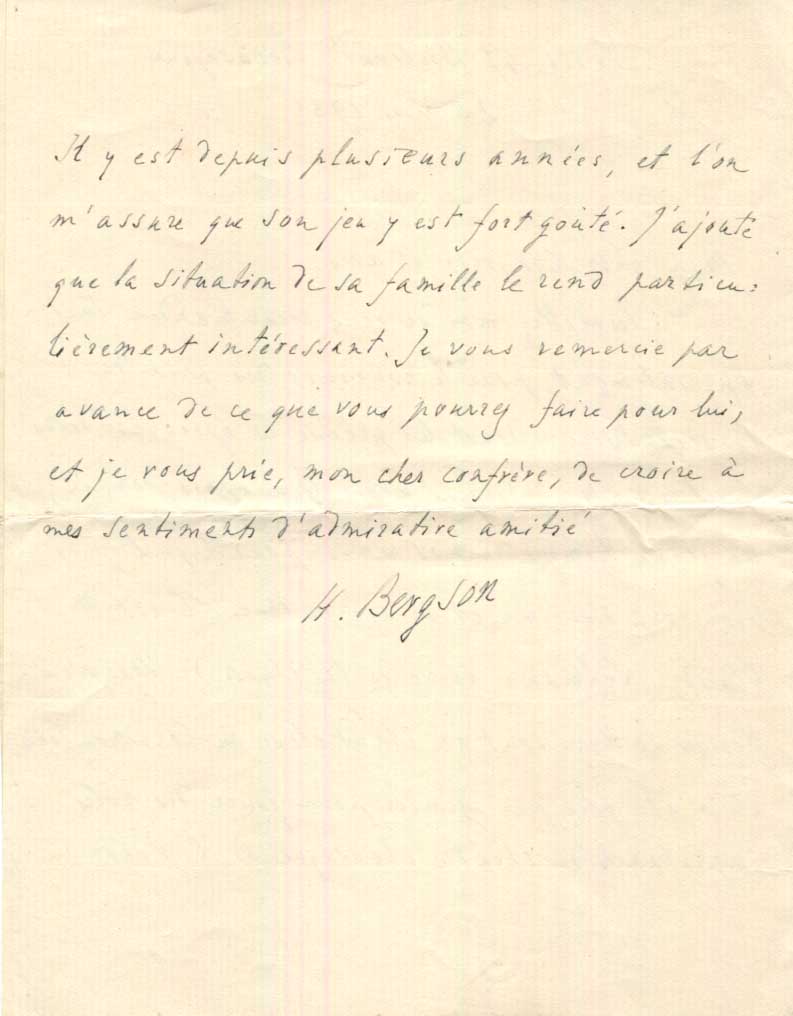 Il y est depuis plusieurs années, et l'on
m'assure que son jeu y est fort goûté. J'ajoute
que la situation de sa famille le rend particu-
lièrement intéressant. Je vous remercie par
avance de ce que vous pourrez faire pour lui,
et je vous prie, mon cher confrère, de croire à
mes sentiments d'admirative amitié
H. Bergson